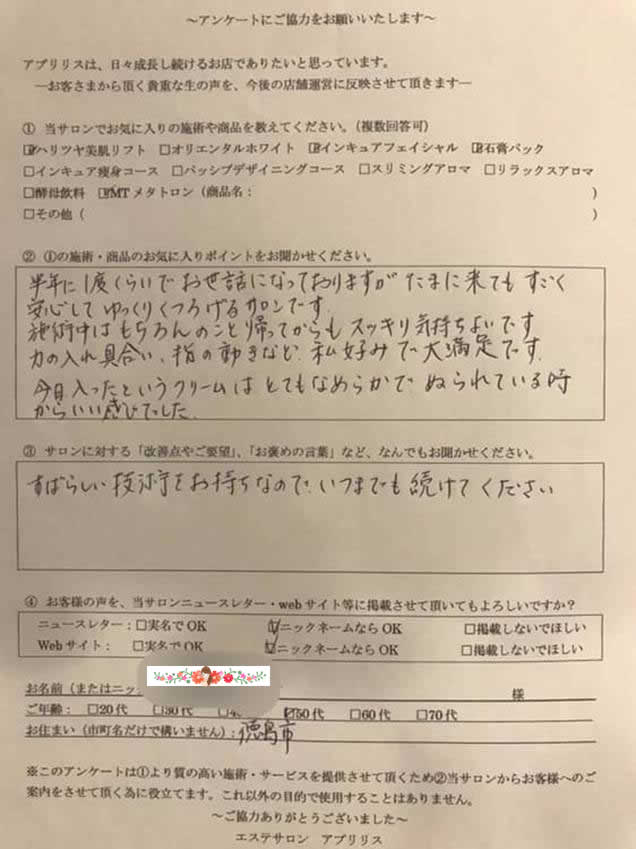 ～アンケートにご協力をお願いいたします～
アプリリスは、日々成長し続けるお店でありたいと思っています。
―お客さまから頂く貴重な生の声を、今後の店舗運営に反映させて頂きます―
① 当サロンでお気に入りの施術や商品を教えてください。（複数回答可）
☑ハリツヤ美肌リフト □オリエンタルホワイト ☑インキュアフェイシャル ☑石膏パック
□インキュア痩身コース □パッシブデザイニングコース □スリミングアロマ □リラックスアロマ
□酵母飲料 ☑MTメタトロン（商品名： ）
□その他（ ）
② ①の施術・商品のお気に入りポイントをお聞かせください。
半年に1度くらいでお世話になっておりますが たまに来ても すごく
安心して ゆっくりくつろげるサロンです。
施術中はもちろんのこと帰ってからも スッキリ気持ちよいです
力の入れ具合い、指の動きなど 私好みで大満足です。
今日入ったというクリームは とてもなめらかで ぬられている時
からいい感じでした。
③ サロンに対する「改善点やご要望」、「お褒めの言葉」など、なんでもお聞かせください。
すばらしい技術をお持ちなので、いつまでも続けてください
④ お客様の声を、当サロンニュースレター・webサイト等に掲載させて頂いてもよろしいですか？
ニュースレター：□実名でOK ☑ニックネームならOK □掲載しないでほしい
Webサイト： □実名でOK ☑ニックネームならOK □掲載しないでほしい
お名前（またはニッ 様
ご年齢：□20代 □30代 □4 ☑50代 □60代 □70代
お住まい（市町名だけで構いません）：徳島市
※このアンケートは①より質の高い施術・サービスを提供させて頂くため②当サロンからお客様へのご
案内をさせて頂く為に役立てます。これ以外の目的で使用することはありません。
～ご協力ありがとうございました～
エステサロン アプリリス